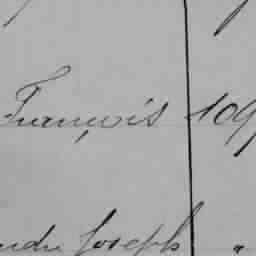 François 109
Joseph "